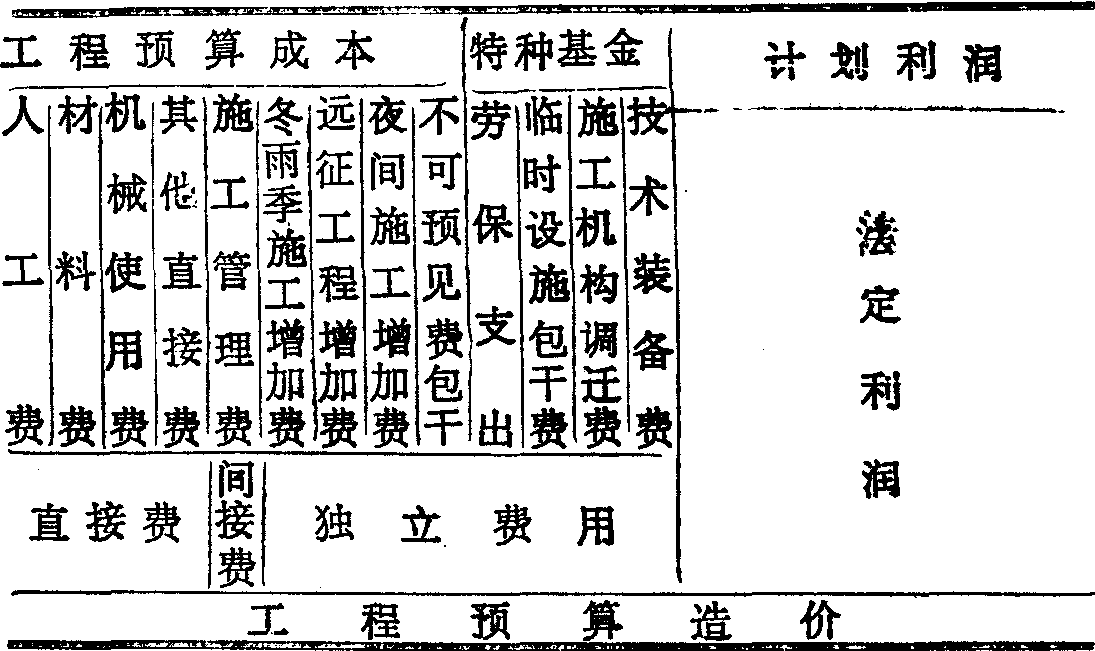 工程预算成本
特种基金
计划利润
人工费
材料费
机械使用费
其他直接费
施工管理费
冬雨季施工增加费
远征工程增加费
夜间施工增加费
不可预见费包干
劳保支出
临时设施包干费
施工机构调迁费
技术装备费
法定利润
直接费
间接费
独立费用
工程预算造价